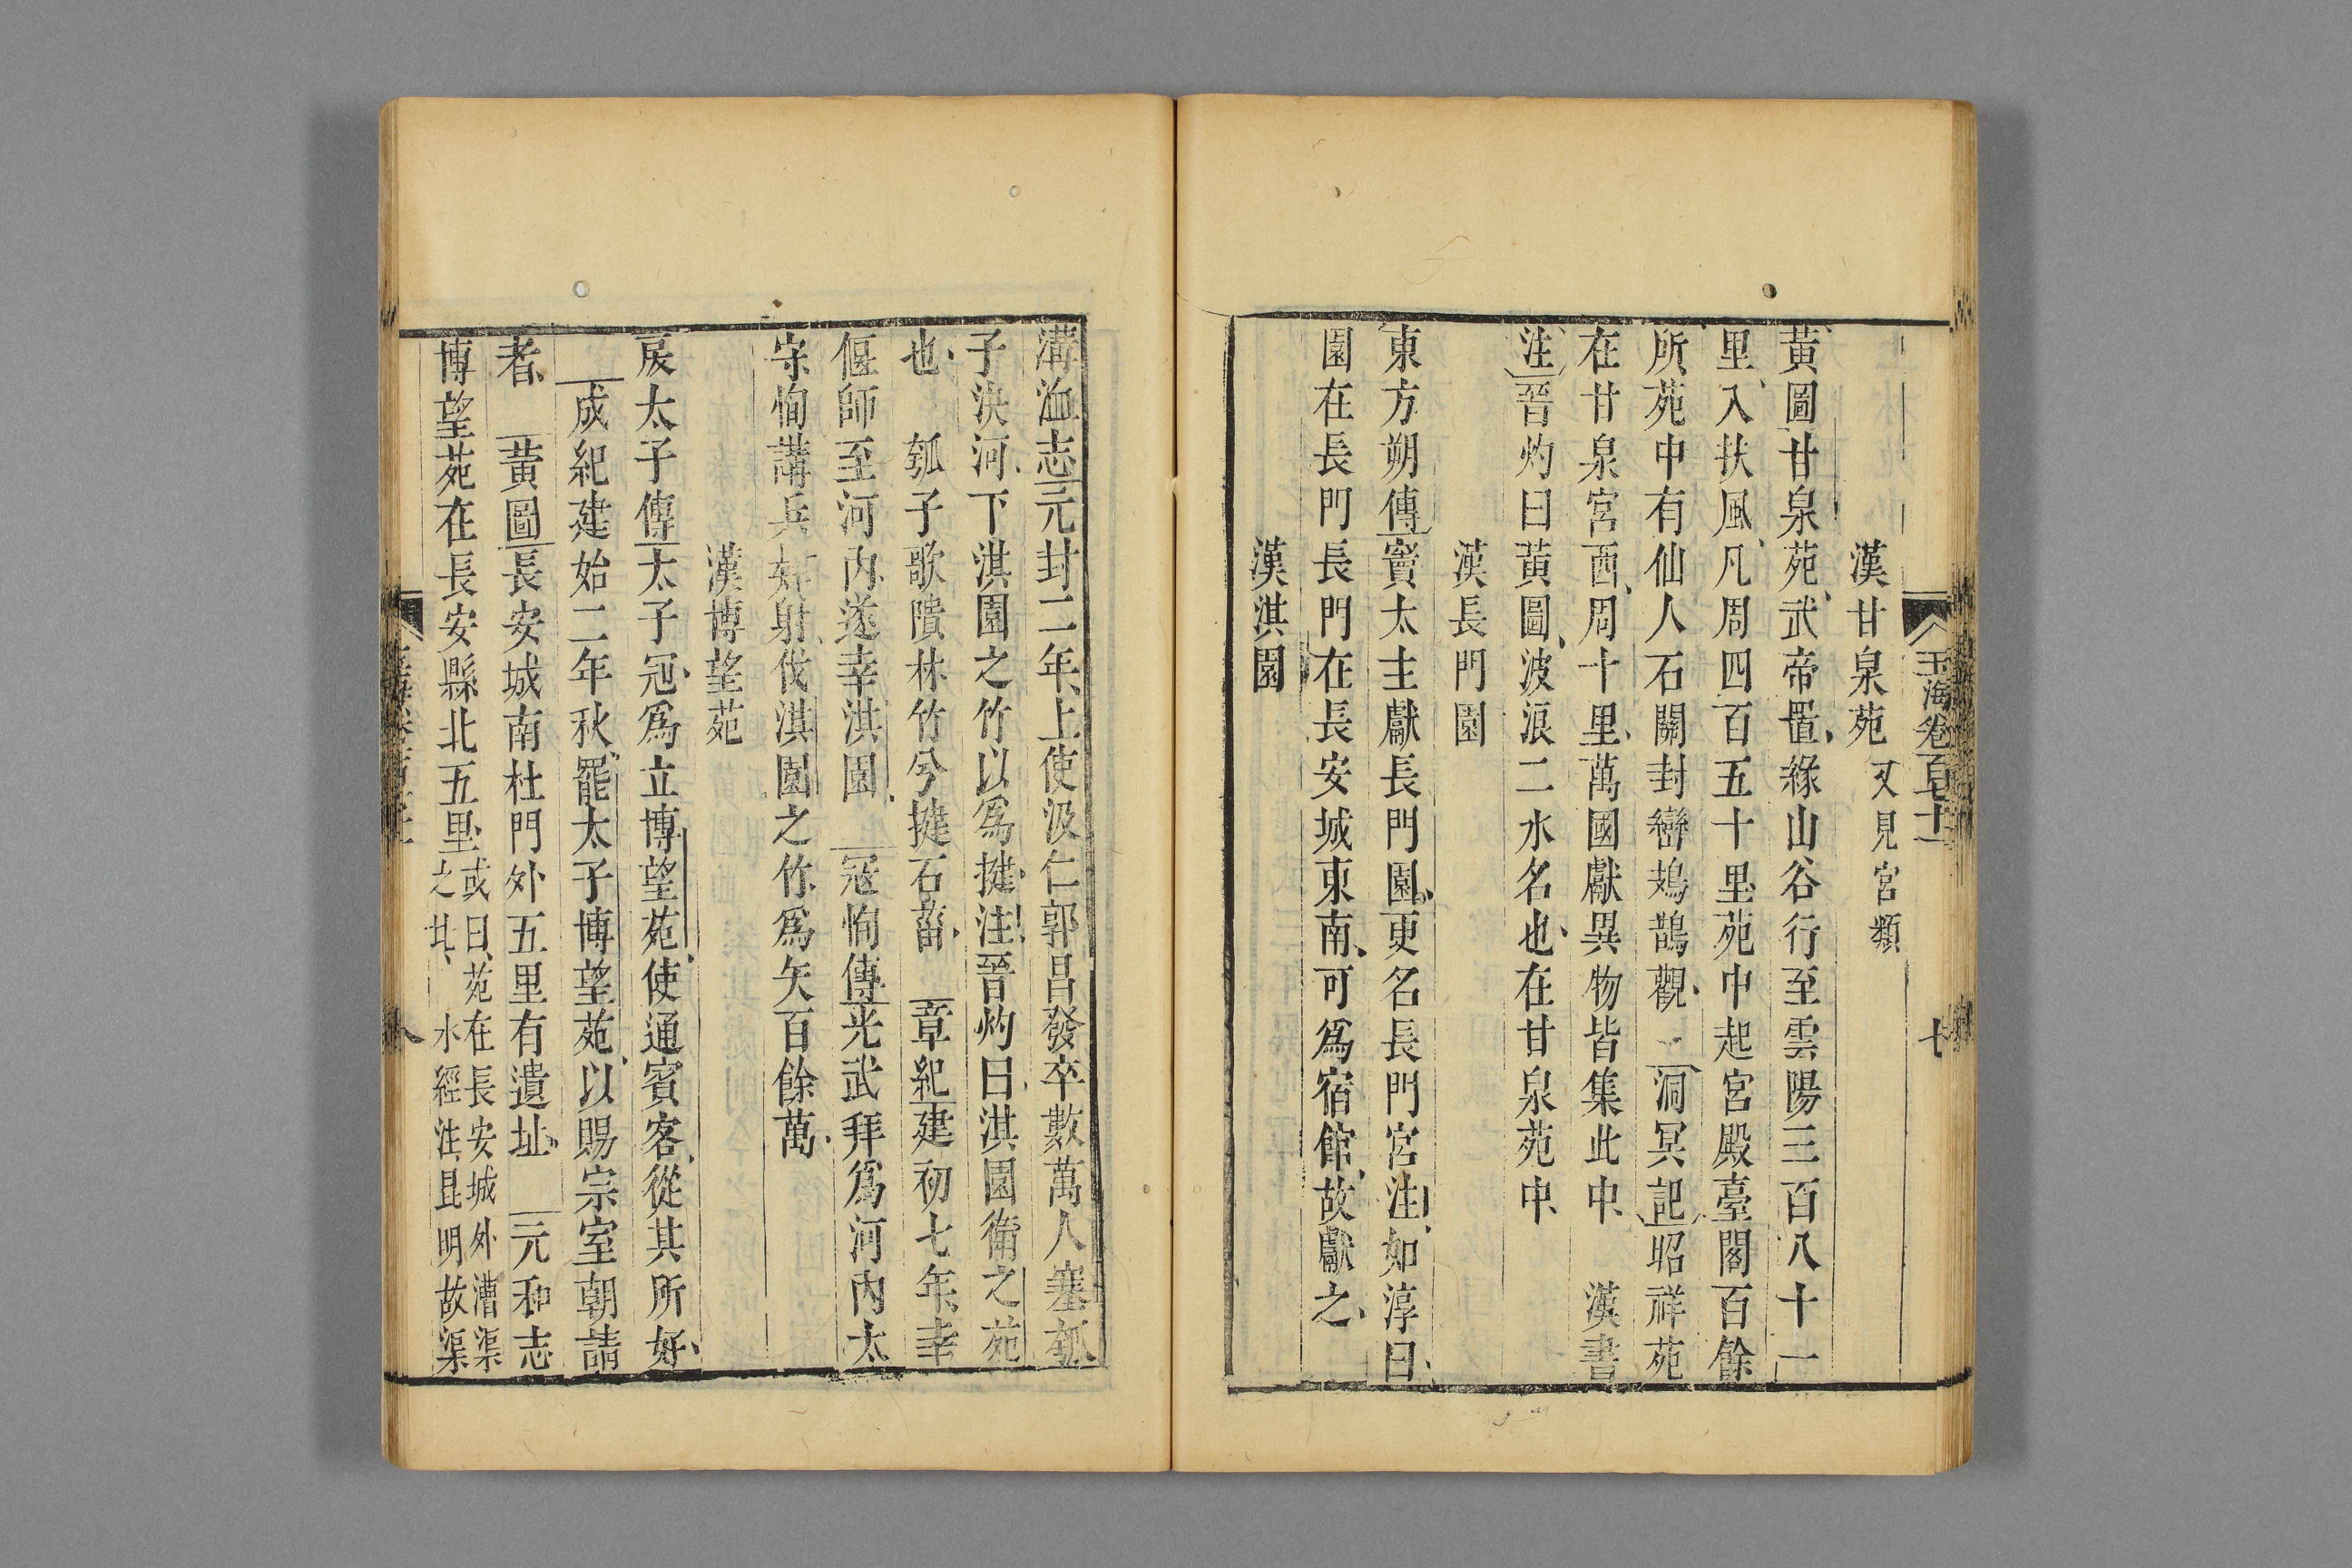 玉海卷百七十一
七
漢甘泉苑 又見宮類
黃圖甘泉苑武帝置緣山谷行至雲陽三百八十一
里入扶風凡周四百五十里苑中起宮殿臺閣百餘
所苑中有仙人石關封巒鳷鵲觀 洞冥記昭祥苑
在甘泉宮西周十里萬國獻異物皆集此中 漢書
注晉灼曰黃圖波浪二水名也在甘泉苑中
漢長門園
東方朔傳竇太主獻長門園更名長門宮注如淳曰
園在長門長門在長安城東南可為宿館故獻之
漢淇園
溝洫志元封二年上使汲仁郭昌發卒數萬人塞瓠
子決河下淇園之竹以為揵注晉灼曰淇園衛之苑
也 瓠子歌隤林竹兮揵石菑 章紀建初七年幸
偃師至河內遂幸淇園 寇恂傳光武拜為河內太
守恂講兵肄射伐淇園之竹為矢百餘萬
漢博望苑
戾太子傳太子冠為立博望苑使通賓客從其所好
成紀建始二年秋罷太子博望苑以賜宗室朝請
者 黃圖長安城南杜門外五里有遺址 元和志
博望苑在長安縣北五里或曰苑在長安城外漕渠
之北 水經注昆明故渠
八